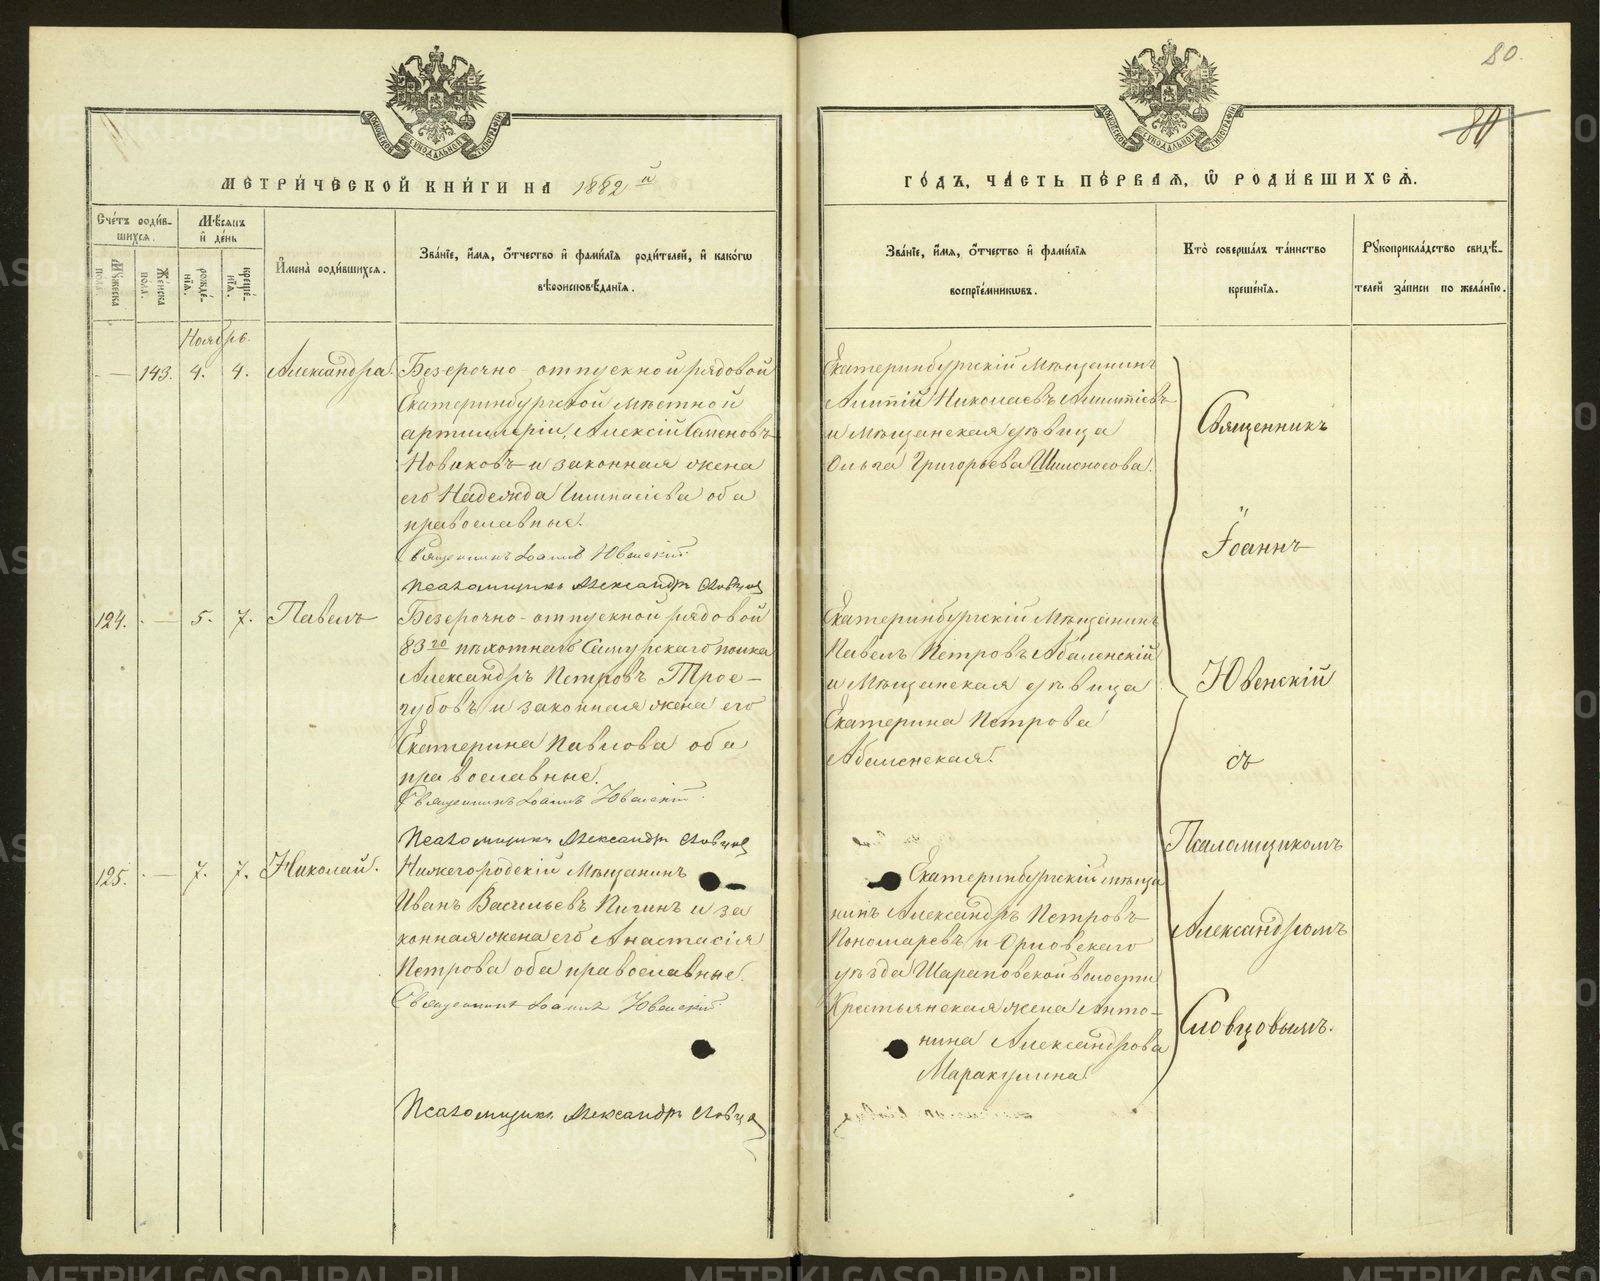 80.
80
МЕТРИЧЕСКОЙ КНИГИ НА 1882й
ГОДЪ, ЧАСТЬ ПЕРВАЯ, Ѡ РОДИВШИХСЯ.
Счетъ родив-
шихся.
Мужеска
пола.
Женска
пола.
Мѣсяцъ
и день
рожде-
нія.
креще-
нія.
Имена родившихся.
Званіе, имя, отчество и фамилія родителей, и какогѡ
вѣроисповѣданія.
Званіе, имя, отчество и фамилія
воспріемникѡвъ.
Кто совершалъ таинство
крещенія.
Рукоприкладство свидѣ-
телей записи по желанію.
Ноябрь.
— 143. 4. 4. Александра.
Безсрочно-отпускной рядовой
Екатеринбургской мѣстной
артиллеріи, Алексій Семеновъ
Новиковъ и законная жена
его Надежда оба
православные.
Священникъ Іоаннъ Ювенскій.
Псаломщикъ Александръ Словцов
Екатеринбургскій Мѣщанинъ
Николаевъ
и мѣщанская дѣвица
Ольга Григорьева Шилоносова.
124. — 5. 7. Павелъ
Безсрочно-отпускной рядовой
83го пѣхотнаго Самурскаго полка
Александръ Петровъ Трое-
губовъ и законная жена его
Екатерина Павлова оба
православные.
Священникъ Іоаннъ Ювенскій.
Псаломщикъ Александръ Словцов
Екатеринбургскій Мѣщанинъ
Павелъ Петровъ Абаленскій
и Мѣщанская дѣвица
Екатерина Петрова
Абаленская.
125. — 7. 7. Николай.
Нижегородскій Мѣщанинъ
Иванъ Васильевъ Пигинъ и за
конная жена его Анастасія
Петрова оба православные.
Священникъ Іоаннъ Ювенскій
Псаломщикъ Александръ Словцов
Екатеринбургскій мѣща
нинъ Александръ Петровъ
Пономаревъ и Орловскаго
уѣзда Шараповской волости
Крестьянская жена Анто-
нина Александрова
Маракулина.
Священникъ
Іоаннъ
Ювенскій
съ
Псаломщикомъ
Александромъ
Словцовымъ.
METRIKI.GASO-URAL.RU